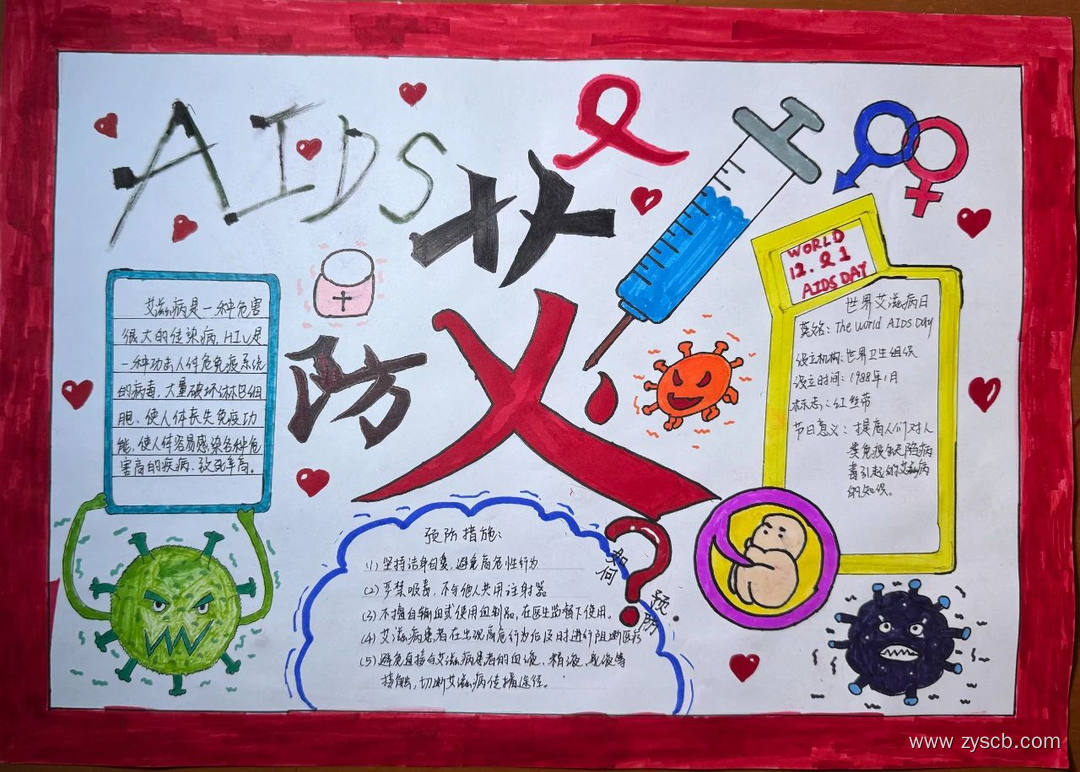 AIDS
防艾
艾滋病是一种危害
很大的传染病,HIV是
一种功击人体免疫系统
的病毒,大量破坏淋巴细
胞,使人体丧失免疫功
能,使人体容易感染各种危
害高的疾病,致死率高。
WORLD
12.1
AIDS DAY
世界艾滋病日
英名:The world AIDS DAY
设立机构:世界卫生组织
设立时间:1988年1月
标志:红丝带
节日意义:提高人们对人
类免疫缺陷病
毒引起的艾滋病
的知识。
如何预防
预防措施:
(1)坚持洁身自爱,避免高危性行为
(2)严禁吸毒,不与他人共用注射器
(3)不擅自输血或使用血制品,在医生监督下使用。
(4)艾滋病患者在出现高危行为后及时进行阻断医疗
(5)避免直接与艾滋病患者的血液、精液、乳液等
接触,切断艾滋病传播途径。
www zyscb.com